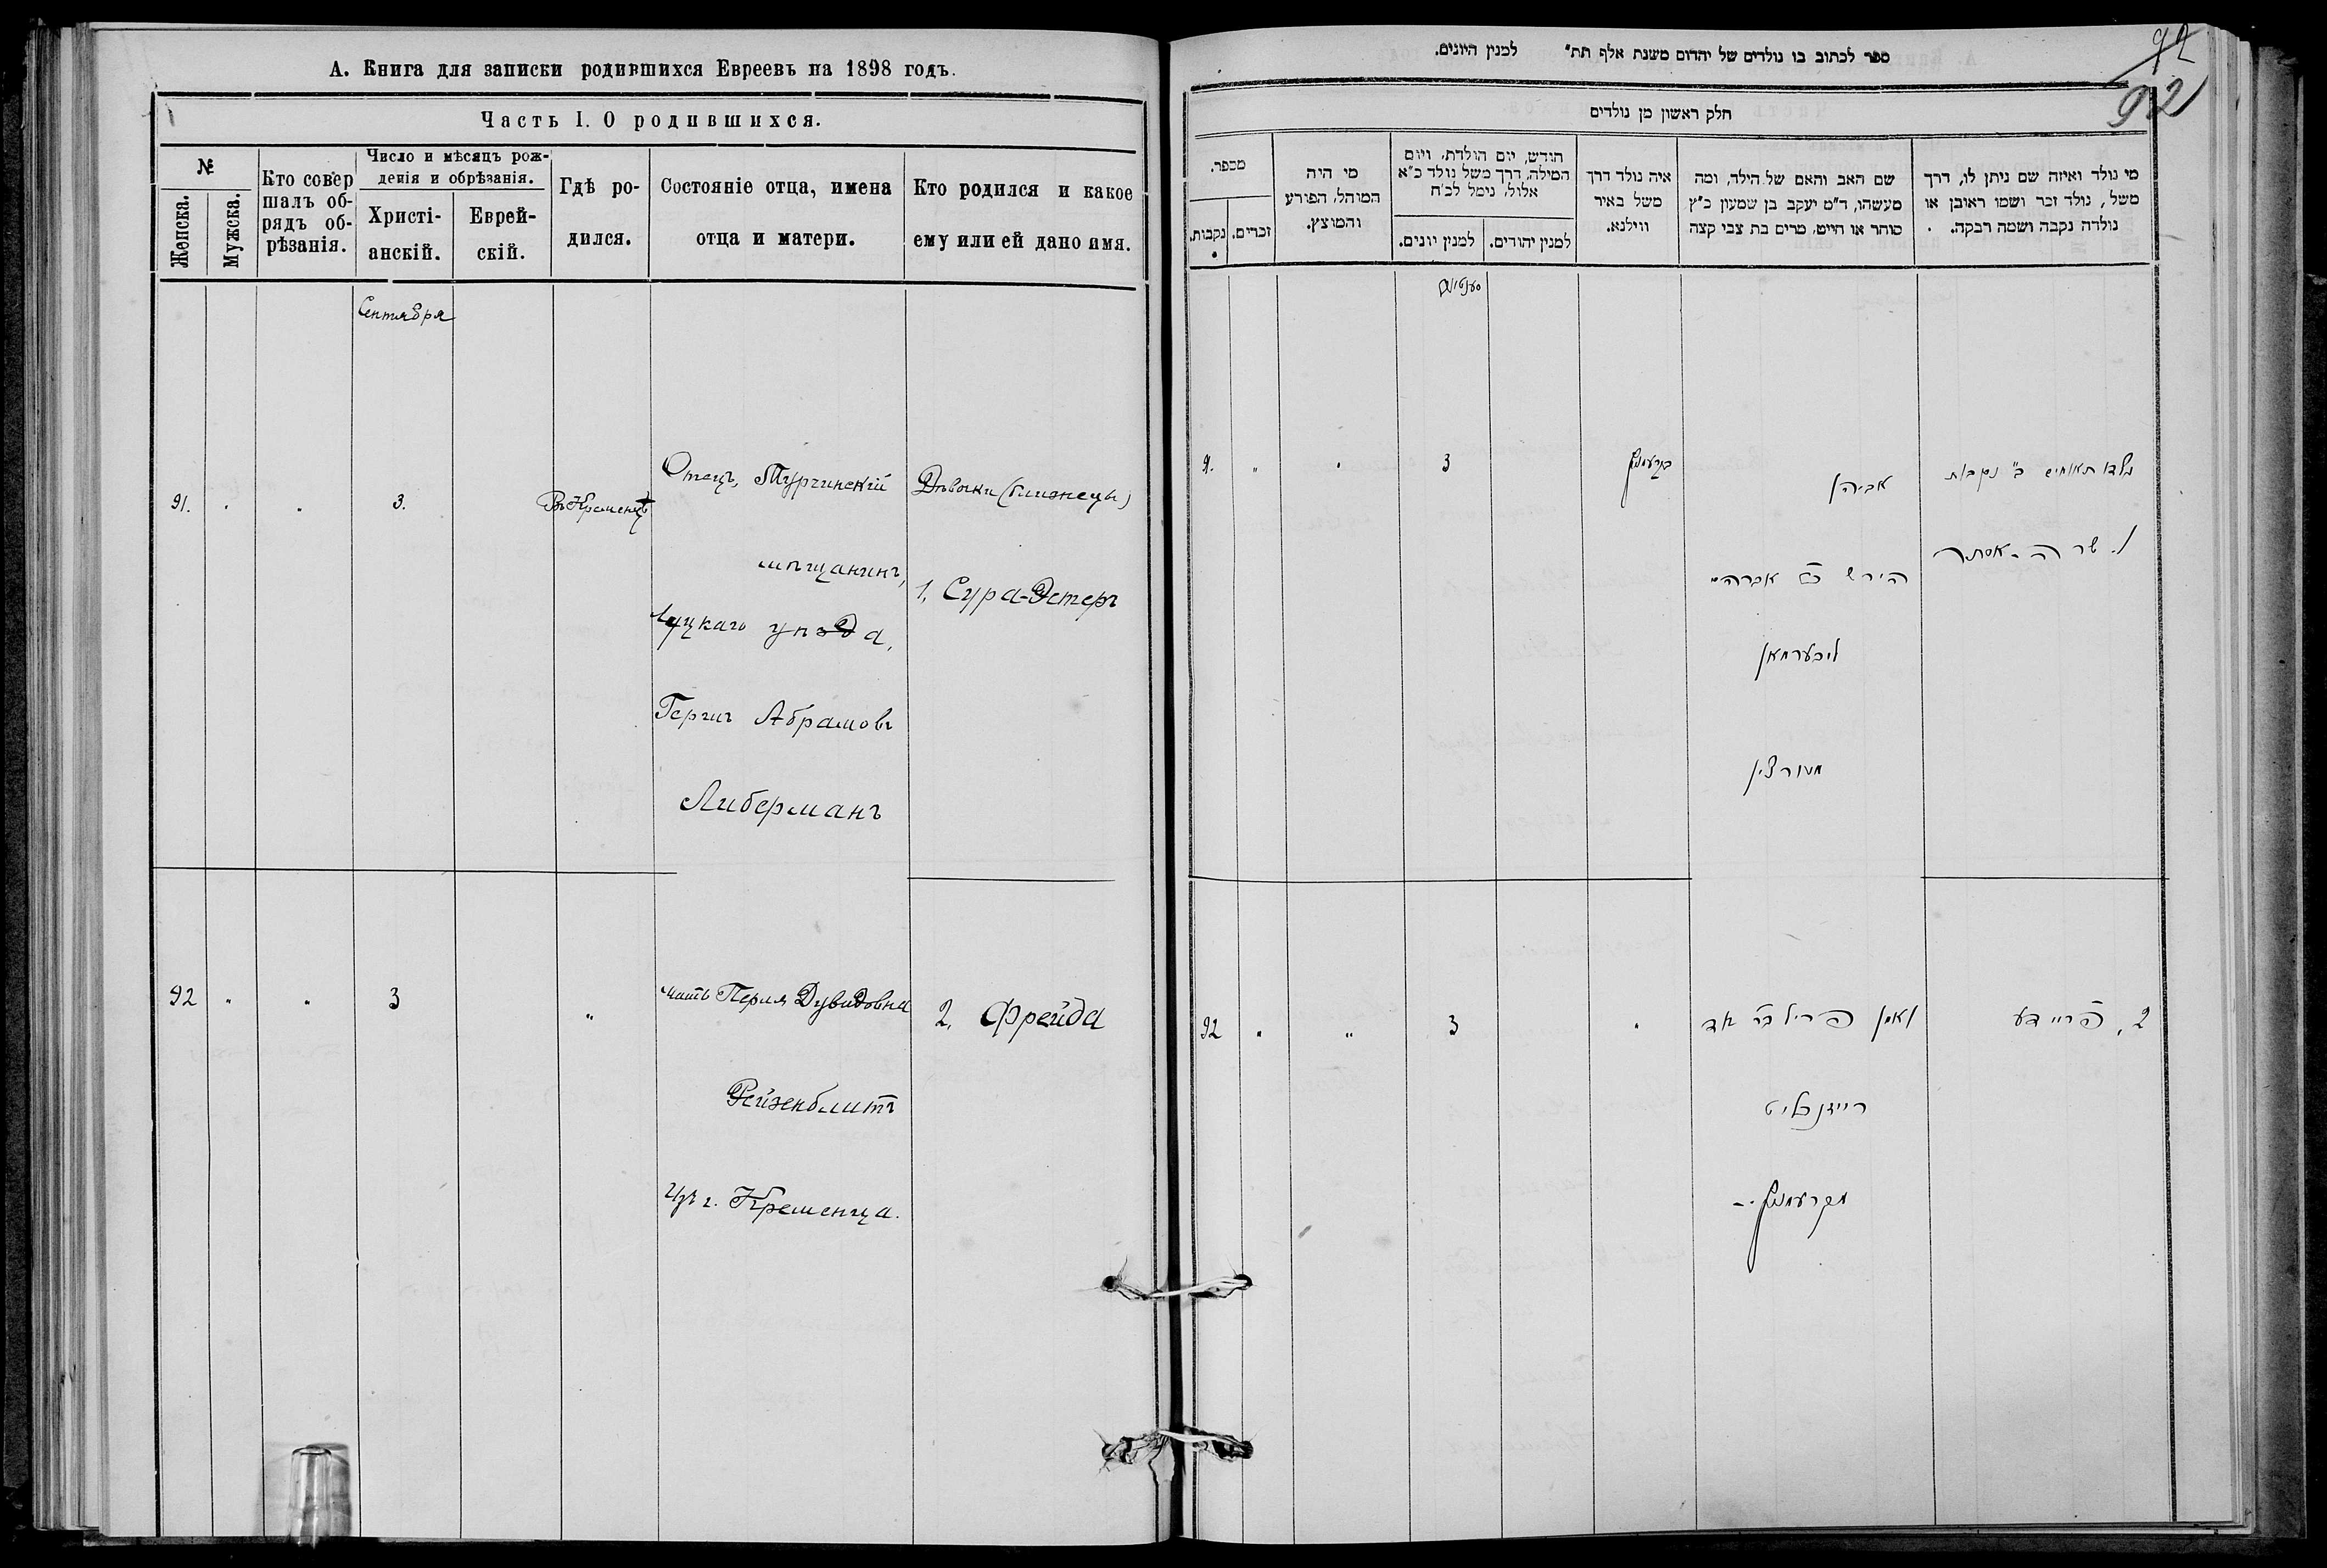 А. Книга для записки родившихся Евреевъ на 1898 годъ.
Часть I. О родившихся.
№
Женска.
Мужска.
Кто совер
шалъ об-
рядъ об-
рѣзанія.
Число и мѣсяцъ рож-
денія и обрѣзанія.
Христі-
анскій.
Еврей-
скій.
Гдѣ ро-
дился.
Состояніе отца, имена
отца и матери.
Кто родился и какое
ему или ей дано имя.
Сентября
91. 3. Въ Кременцѣ
Отецъ, Турчинскій
мѣщанинъ,
Луцкаго уѣзда,
Гершъ Абрамовъ
Либерманъ
Дѣвочки (близнецы)
1, Сура-Эстеръ
92 " " 3 "
мать Перля Дувидовна
Рейзенблитъ
Изъ г. Кременца.
2, Фрейда
92
92
ספר לכתוב בו נולדים של יהדום משנת אלף תת״ למנין היונים.
חלק ראשון מן נולדים
מספר.
נקבות.
זכרים.
מי היה
המוהל, הפורע
והמוצץ.
חודש, יום הולדת, ויום
המילה, דרך משל נולד כ״א
אלול, נימל לכ״ח
למנין יונים.
למנין יהודים.
איה נולד דרך
משל באיר
ווילנא.
שם האב והאם של הילד, ומה
מעשהו, ד״מ יעקב בן שמעון כ״ץ
סוחר או חייט, מרים בת צבי קצה
מי נולד ואיזה שם ניתן לו, דרך
משל, נולד זכר ושמו ראובן או
נולדה נקבה ושמה רבקה.
9. " " 3
אביהן
הירש ב״ר אברהם
ליבערמאן
מטורצין
נולדו תאומים ב׳ נקבות
1. שרה - אסתר
92 " " 3 "
ואמן פריל בר דוד
רייזנבליט
מקרעמניץ
2, פריידע